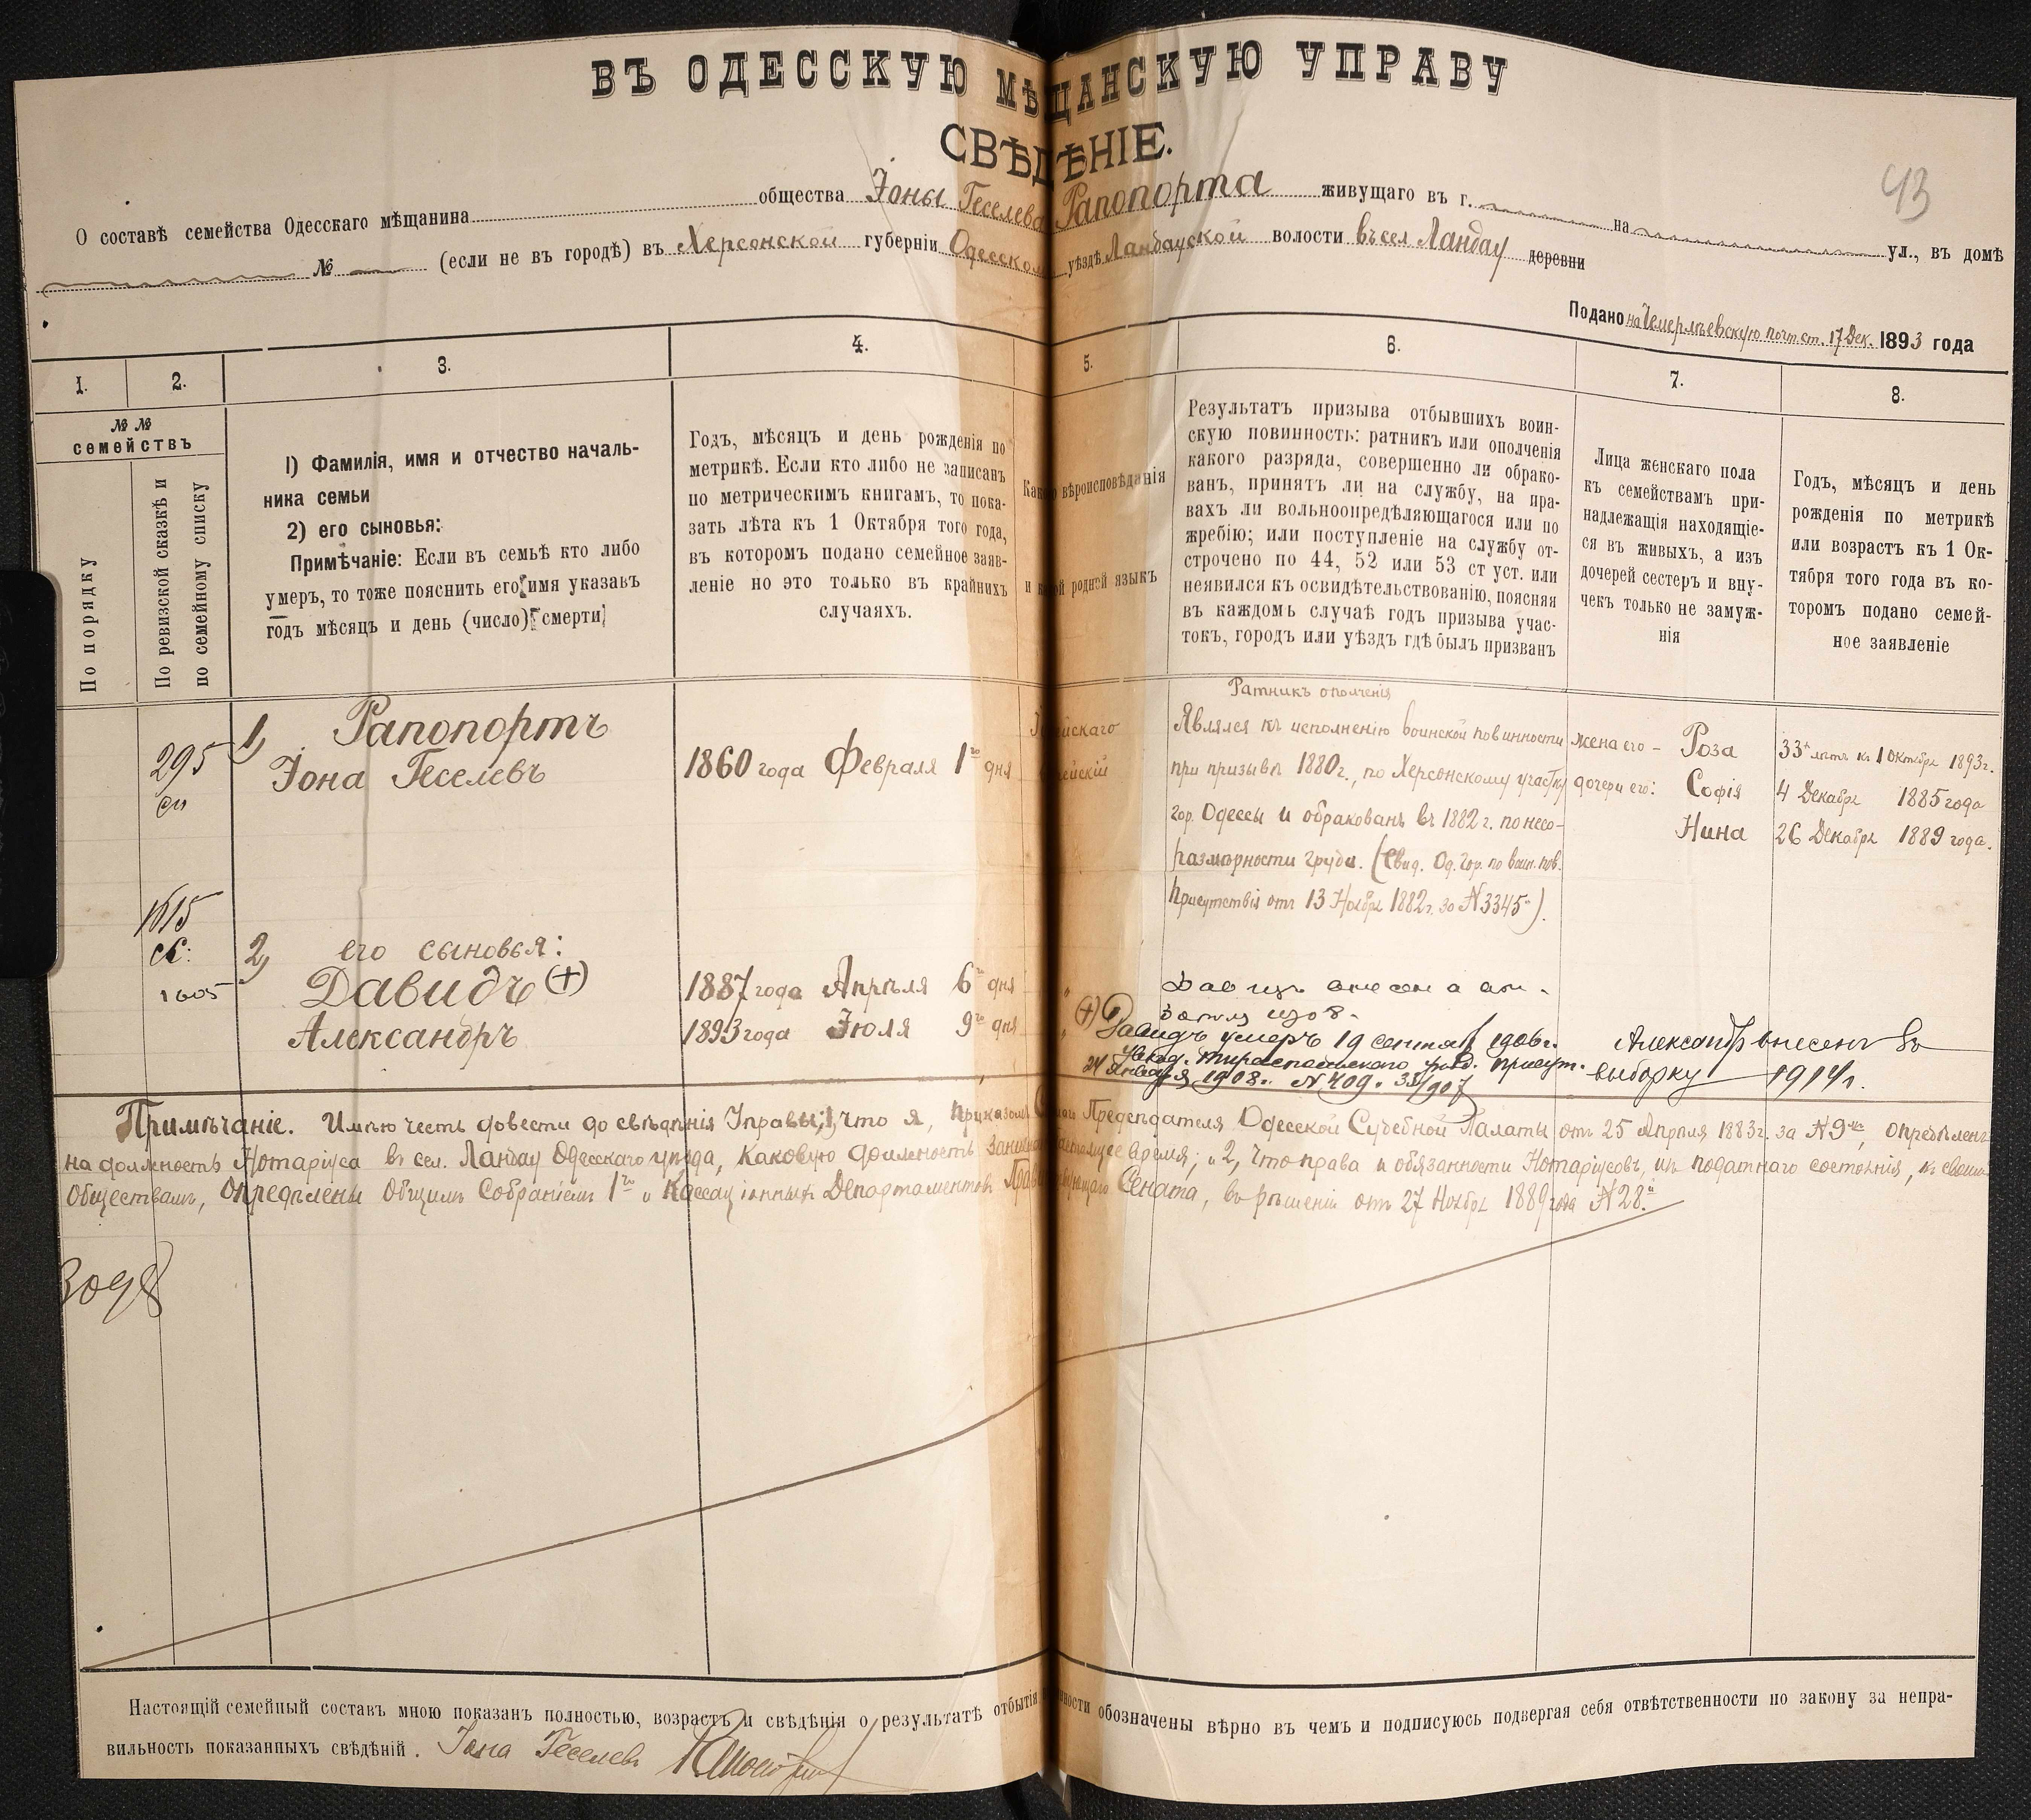 ВЪ ОДЕССКУЮ МѢЩАНСКУЮ УПРАВУ
СВѢДѢНІЕ.
43
О составѣ семейства Одесскаго мѣщанина общества Іоны Геселева Рапопорта живущаго въ г. на ул., въ домѣ
№ (если не въ городѣ) въ Херсонской губерніи Одесском уѣздѣ Ландауской волости въ сел Ландау деревни
Подано на почт ст. 17 Дек. 1893 года
1.
2.
3.
4.
5.
6.
7.
8.
№ №
семействъ
По порядку
По ревизской сказкѣ и
по семейному списку
1) Фамилія, имя и отчество началь-
ника семьи
2) его сыновья:
Примѣчаніе: Если въ семьѣ кто либо
умеръ, то тоже пояснить его имя указавъ
годъ мѣсяцъ и день (число) смерти
Годъ, мѣсяцъ и день рожденія по
метрикѣ. Если кто либо не записанъ
по метрическимъ книгамъ, то пока-
зать лѣта къ 1 Октября того года,
въ которомъ подано семейное заяв-
леніе но это только въ крайнихъ
случаяхъ.
вѣроисповѣданія
родной языкъ
Результатъ призыва отбывшихъ воин-
скую повинность: ратникъ или ополченія
какого разряда, совершенно ли обрако-
ванъ, принятъ ли на службу, на пра-
вахъ ли вольноопредѣляющагося или по
жребію; или поступленіе на службу от-
строчено по 44, 52 или 53 ст уст. или
неявился къ освидѣтельствованію, поясняя
въ каждомъ случаѣ годъ призыва учас-
токъ, городъ или уѣздъ гдѣ былъ призванъ
Лица женскаго пола
къ семействамъ при-
надлежащія находящіе-
ся въ живыхъ, а изъ
дочерей сестеръ и вну-
чекъ только не замуж-
нія
Годъ, мѣсяцъ и день
рожденія по метрикѣ
или возрастъ къ 1 Ок-
тября того года въ ко-
торомъ подано семей-
ное заявленіе
295
1) Рапопортъ
Іона Геселевъ
1860 года Февраля 1го дня
Ратникъ ополченія
Являлся къ исполненію воинской повинности
при призывѣ 1880 г., по Херсонскому участку
гор. Одессы и обракованъ въ 1882 г. по несо-
размѣрности груди. (Свид. Од. Гор. по воин. пов.
Присутствія отъ 13 Ноября 1882 г. за № 3345)
жена его - Роза
дочери его: Софія
Нина
33 лѣтъ къ 1 Октября 1893 г.
4 Декабря 1885 года
26 Декабря 1889 года.
1615
1605
2) его сыновья:
Давидъ (+)
Александръ
1887 года Апрѣля 6го дня
1893 года Іюля 9го дня
(+) Давидъ умеръ 19 сентяб 1906 г.
Тираспольскаго присут.
24 Января 1908 г. № 409.
Александръ внесенъ въ
выборку 1914 г.
Примѣчаніе. Имѣю честь довести до свѣдѣнія Управы: 1, что я, приказомъ Предсѣдателя Одесской Судебной Палаты отъ 25 Апрѣля 1883 г. за № 9, опредѣленъ
на должность Нотаріуса въ сел. Ландау Одесскаго уѣзда, каковую должность время; и 2, что права и обязанности Нотаріусовъ, изъ податнаго состоянія, къ своимъ
обществамъ, опредѣлены Общимъ Собраніемъ 1го и Кассаціонныхъ Департаментовъ Сената, въ рѣшеніи отъ 27 Ноября 1889 года № 28.
3098
Настоящій семейный составъ мною показанъ полностью, возрастъ и свѣдѣнія о результатѣ отбытія обозначены вѣрно въ чемъ и подписуюсь подвергая себя отвѣтственности по закону за непра-
вильность показанныхъ свѣдѣній. Іона Геселевъ